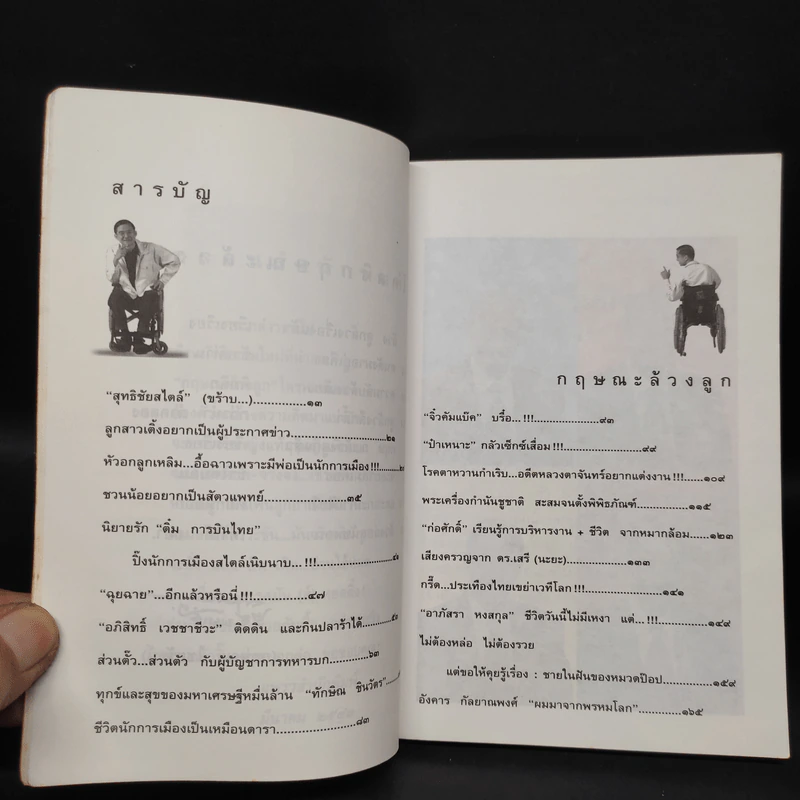 สารบัญ
“สุทธิชัยสไตล์” (ขร้าบ...)...............๑๓
ลูกสาวเติ้งอยากเป็นผู้ประกาศข่าว......................๒๑
หัวอกลูกเหลิม...อื้อฉาวเพราะมีพ่อเป็นนักการเมือง!!!.......
ชวนน้อยอยากเป็นสัตวแพทย์......................๓๕
นิยายรัก “ติ๋ม การบินไทย”
ปิ๊งนักการเมืองสไตล์เนิบนาบ...!!!..............
“ฉุยฉาย”...อีกแล้วหรือนี่!!!.........๔๗
“อภิสิทธิ์ เวชชาชีวะ” ติดดิน และกินปลาร้าได้.........
ส่วนตั๊ว...ส่วนตัว กับผู้บัญชาการทหารบก..........๖๓
ทุกข์และสุขของมหาเศรษฐีหมื่นล้าน “ทักษิณ ชินวัตร”..
ชีวิตนักการเมืองเป็นเหมือนดารา.................๘๓
กฤษณะล้วงลูก
“จิ๋วคัมแบ๊ค” บรื๋อ...!!!...............๙๓
“ป๋าเหนาะ” กลัวเซ็กซ์เสื่อม!!!..................๙๙
โรคตาหวานกำเริบ...อดีตหลวงตาจันทร์อยากแต่งงาน!!!......๑๐๙
พระเครื่องกำนันชูชาติ สะสมจนตั้งพิพิธภัณฑ์..............๑๑๕
“ก่อศักดิ์” เรียนรู้การบริหารงาน + ชีวิต จากหมากล้อม......๑๒๓
เสียงครวญจาก ดร.เสรี (นะยะ)................๑๓๓
กรี๊ด...ประเทืองไทยเขย่าเวทีโลก!!!................๑๔๑
“อาภัสรา หงสกุล” ชีวิตวันนี้ไม่มีเหงา แต่...!!!.......๑๔๙
ไม่ต้องหล่อ ไม่ต้องรวย
แต่ขอให้คุยรู้เรื่อง : ชายในฝันของหมวดป๊อป......๑๕๙
อังคาร กัลยาณพงศ์ “ผมมาจากพรหมโลก”.............๑๖๕